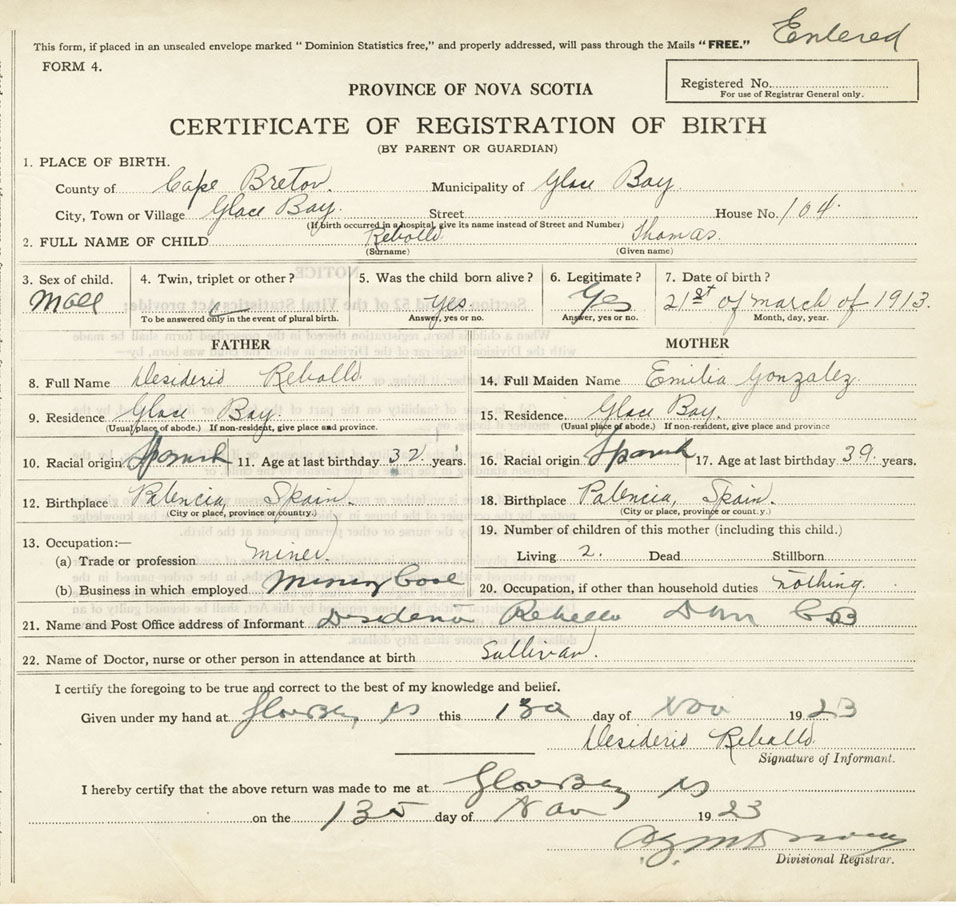 Entered
This form, if placed in an unsealed envelope marked "Dominion Statistics free," and properly addressed, will pass through the Mails "FREE."
FORM 4.
Registered No.
For use of Registrar General only.
PROVINCE OF NOVA SCOTIA
CERTIFICATE OF REGISTRATION OF BIRTH
(BY PARENT OR GUARDIAN)
1. PLACE OF BIRTH.
County of Cape Breton. Municipality of Glace Bay.
City, Town or Village Glace Bay. Street House No. 104.
(If birth occurred in a hospital, give its name instead of Street and Number)
2. FULL NAME OF CHILD Rebollo Thomas.
(Surname) (Given name)
3. Sex of child. 4. Twin, triplet or other? 5. Was the child born alive? 6. Legitimate? 7. Date of birth?
Male Yes. Yes 21st of march of 1913.
To be answered only in the event of plural birth. Answer, yes or no. Answer, yes or no. Month, day, year.
FATHER MOTHER
8. Full Name Desiderio Rebollo. 14. Full Maiden Name Emilia Gonzalez.
9. Residence Glace Bay. 15. Residence. Glace Bay.
(Usual place of abode.) If non-resident, give place and province. (Usual place of abode.) If non-resident, give place and province
10. Racial origin Spanish 11. Age at last birthday 32 years. 16. Racial origin Spanish 17. Age at last birthday 39. years.
12. Birthplace Palencia, Spain. 18. Birthplace Palencia, Spain.
(City or place, province or country.) (City or place, province or country.)
13. Occupation:— 19. Number of children of this mother (including this child.)
(a) Trade or profession miner. Living 2. Dead Stillborn
(b) Business in which employed Mining Coal 20. Occupation, if other than household duties nothing.
21. Name and Post Office address of Informant Desiderio Rebollo Dom CB
22. Name of Doctor, nurse or other person in attendance at birth Sullivan.
I certify the foregoing to be true and correct to the best of my knowledge and belief.
Given under my hand at Glace Bay NS this 13 day of Nov 1923
Desiderio Rebollo.
Signature of Informant.
I hereby certify that the above return was made to me at Glace Bay NS
on the 13 day of Nov 1923
Divisional Registrar.